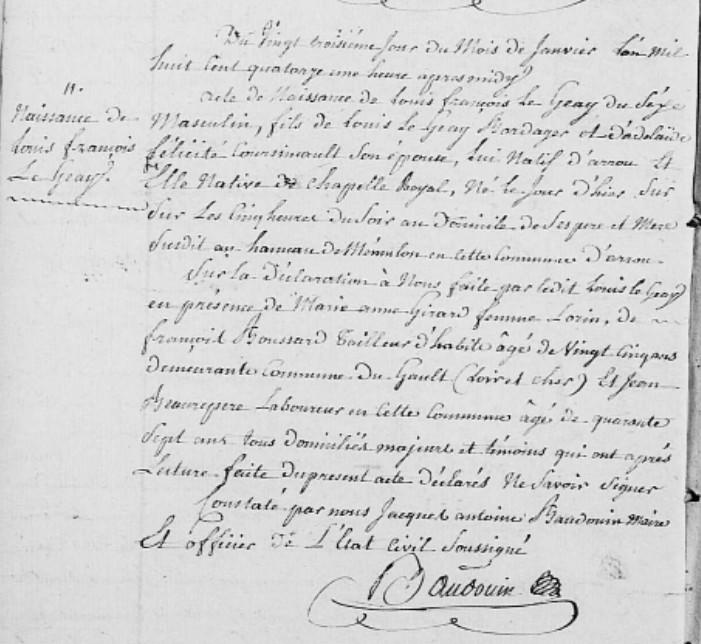 Du Vingt troisième jour du Mois de Janvier l'an mil
huit cent quatorze une heure apres midy
acte de Naissance de Louis françois Le Geay du Sexe
Masculin, fils de Louis Le Geay Bordager et d'adelaide
félicité Coursimault Son épouse, lui Natif d'arrou Et
Elle Native de Chapelle Royal, Né le jour d'hier sur
sur Les Cinq heures du Soir au Domicile de Ses pere et Mere
Susdit au hameau de en Cette Commune d'arrou
Sur la Déclaration à Nous faite par ledit Louis le Geay
en présence de Marie anne Girard femme Lorin, de
françois Houssard Tailleur d'habits âgé de Vingt Cinq ans
demeurante Commune du Gault (Loir et cher) Et Jean
Beaurepere Laboureur en Cette Commune âgé de quarante
Sept ans tous domiciliés majeurs et témoins qui ont après
Lecture faite du present acte déclarés Ne Savoir Signer
Constaté par nous Jacques antoine Baudouin Maire
Et officier De L'Etat Civil Soussigné
Baudouin
11.
Naissance de
Louis françois
Le Geay